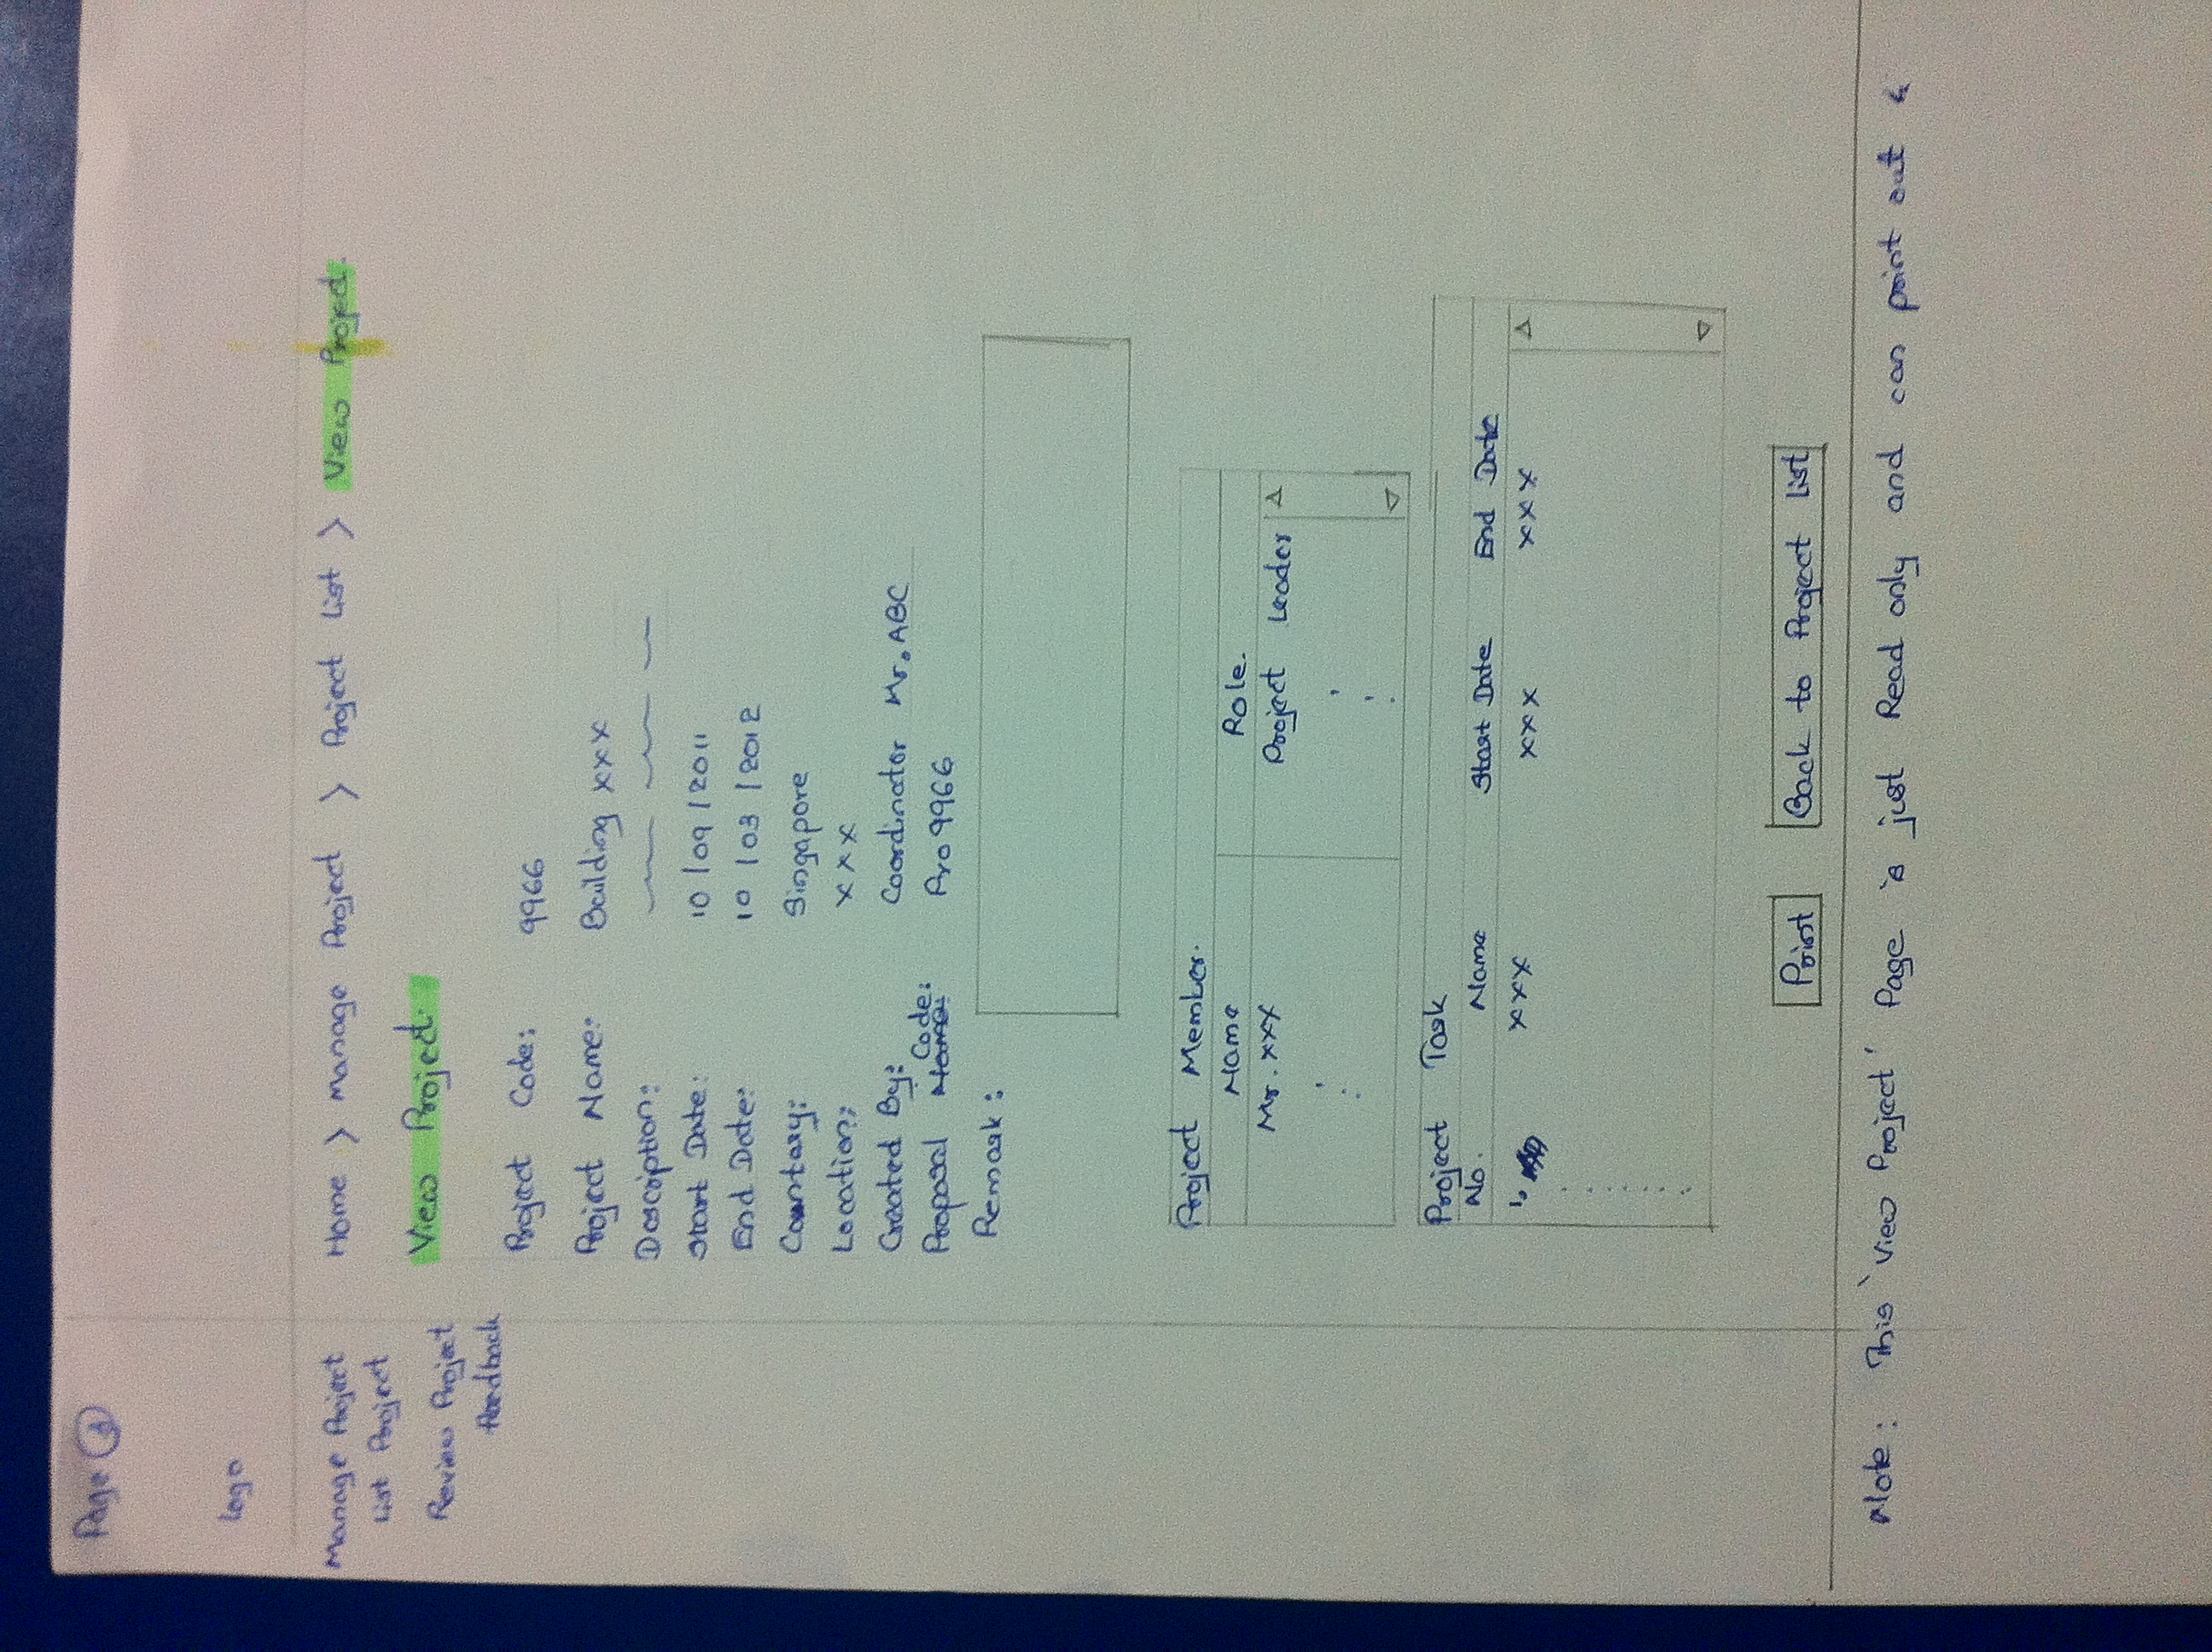 Page 3
Logo
Manage Project
List Project
Review Project
Feedback
Home > Manage Project > Project List > View Project.
View Project.
Project Code: 9966
Project Name: Building xxx
Description:
Start Date: 10/09/2011
End Date: 10/03/2012
Country: Singapore
Location: xxx
Created By: Coordinator Mr. ABC
Proposal Name: Code: Pro9966
Remark:
Project Member.
Name Role.
Mr. xxx Project Leader
Project Task
No. Name Start Date End Date
1. xxx xxx xxx
Print Back to Project List
Note: This 'View Project' Page is just Read only and can print out &